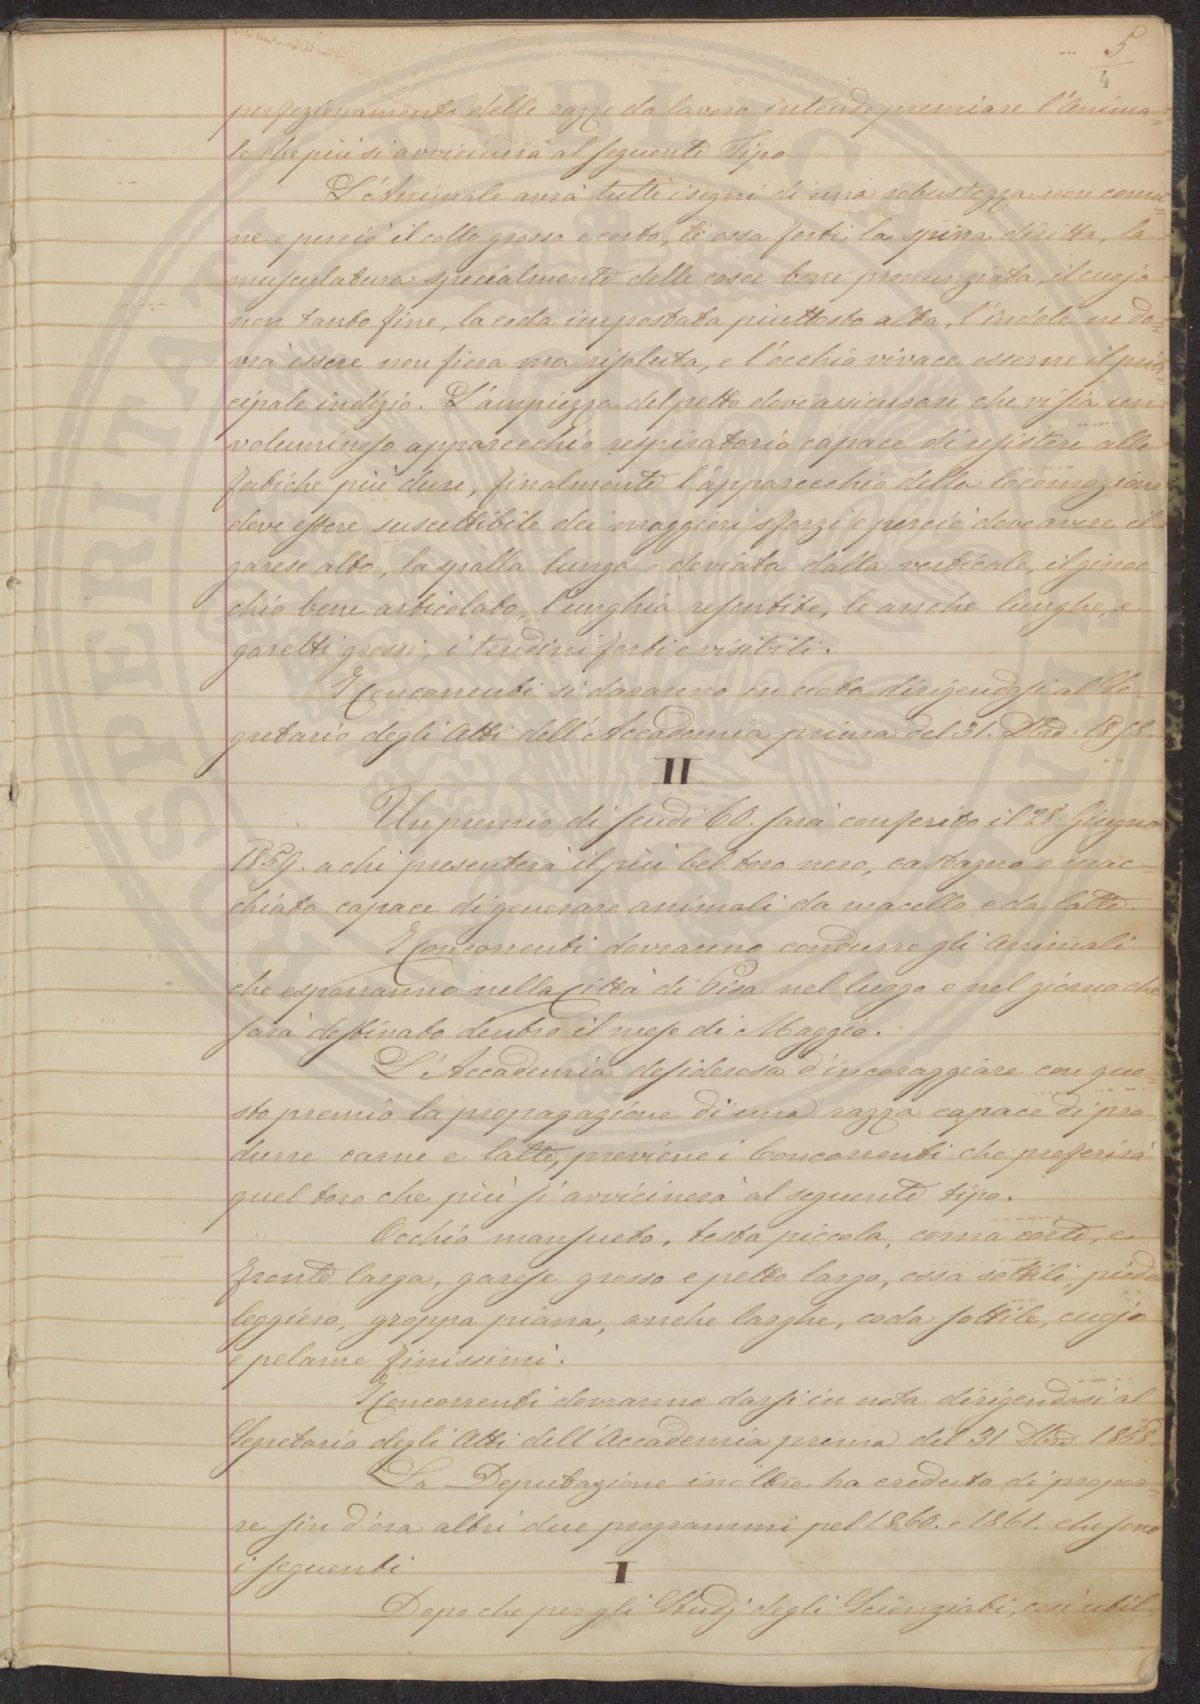 5
4
perfezionamento delle razze da lavoro intende premiare l'Anima=
le che più si avvicinerà al seguente Tipo
L'Animale avrà tutti i segni di una robustezza non comu=
ne e perciò il collo grosso e corto, le ossa forti, la spina diritta, la
musculatura specialmente delle cosce bene pronunziata, il cuojo
non tanto fine, la coda impostata piuttosto alta, l'indole ne do=
vrà essere non fiera ma risoluta, e l'occhio vivace esserne il prin=
cipale indizio. L'ampiezza del petto deve assicurare che vi sia un
voluminoso apparecchio respiratorio capace di resistere alle
fatiche più dure, finalmente l'apparecchio della locomozione
deve essere suscettibile dei maggiori sforzi e perciò deve avere il
garese alto, la spalla lunga e deviata dalla verticale, il ginoc=
chio bene articolato, l'unghia resentite, le anche lunghe, e
garetti grossi, i tendini forti e visibili.
I Concorrenti si daranno in nota dirigendosi al Se=
gretario degli Atti dell'Accademia prima del 31. Dbre. 1858.
II
Un premio di scudi 60. sarà conferito il 28. Giugno
1859. a chi presenterà il più bel toro nero, castagno o mac=
chiato capace di generare animali da macello e da latte.
I Concorrenti dovranno condurre gli Animali
che esporranno nella Città di Pisa nel luogo e nel giorno che
sarà destinato dentro il mese di Maggio.
L'Accademia desiderosa d'incoraggiare con que=
sto premio la propagazione di una razza capace di pro=
durre carne e latte, previene i Concorrenti che preferirà
quel toro che più si avvicinerà al seguente tipo.
Occhio mansueto, testa piccola, corna corte, e
fronte larga, garese grosso e petto largo, ossa sottili, piede
leggiero, groppa piana, anche larghe, coda sottile, cuojo
e pelame finissimi.
I Concorrenti dovranno darsi in nota dirigendosi al
Segretario degli Atti dell'Accademia prima del 31 Dbre 1858.
La Deputazione inoltre ha creduto di propor=
re fin d'ora altri due programmi pel 1860. e 1861. che sono
i seguenti
I
Dopo che per gli Studj degli Scienziati, così util=
PROSPERITATI PUBLICAE